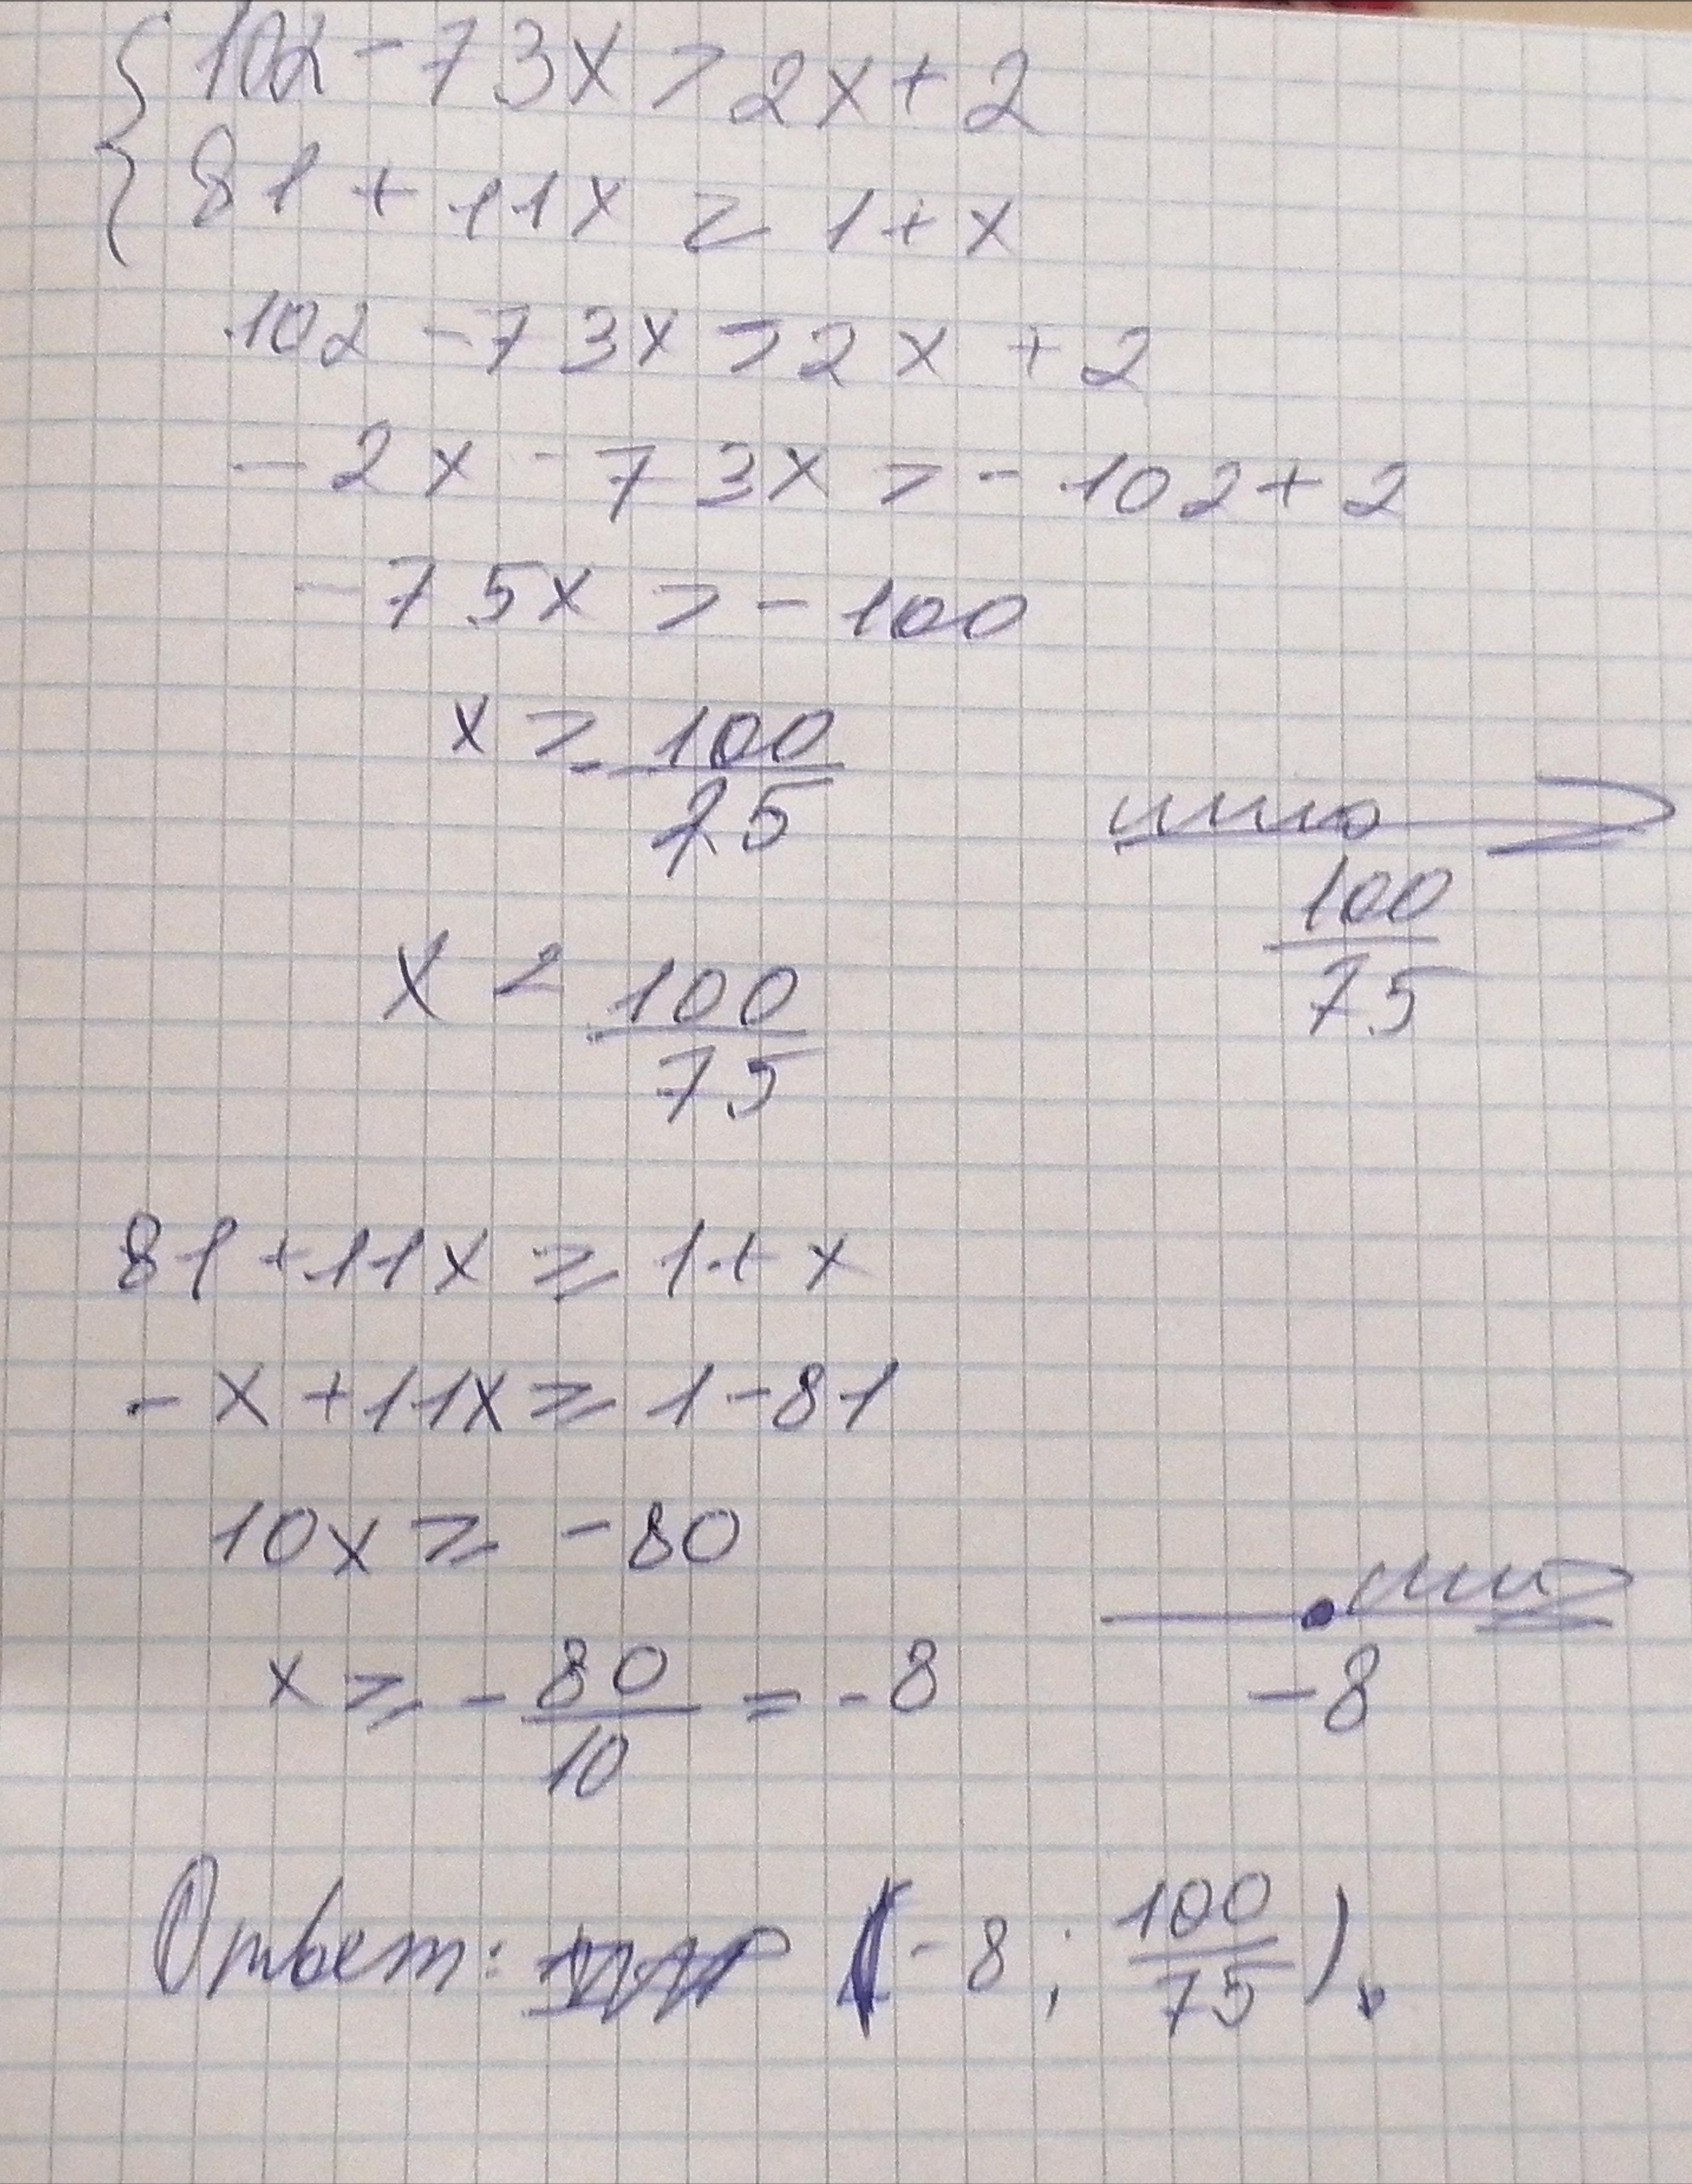 { 102 - 73x > 2x + 2
81 + 11x ≥ 1 + x
102 - 73x > 2x + 2
- 2x - 73x > - 102 + 2
- 75x > - 100
x > - 100/75
x < 100/75
100/75
81 + 11x ≥ 1 + x
- x + 11x ≥ 1 - 81
10x ≥ - 80
x ≥ - 80/10 = - 8
-8
Ответ: (-8 ; 100/75).